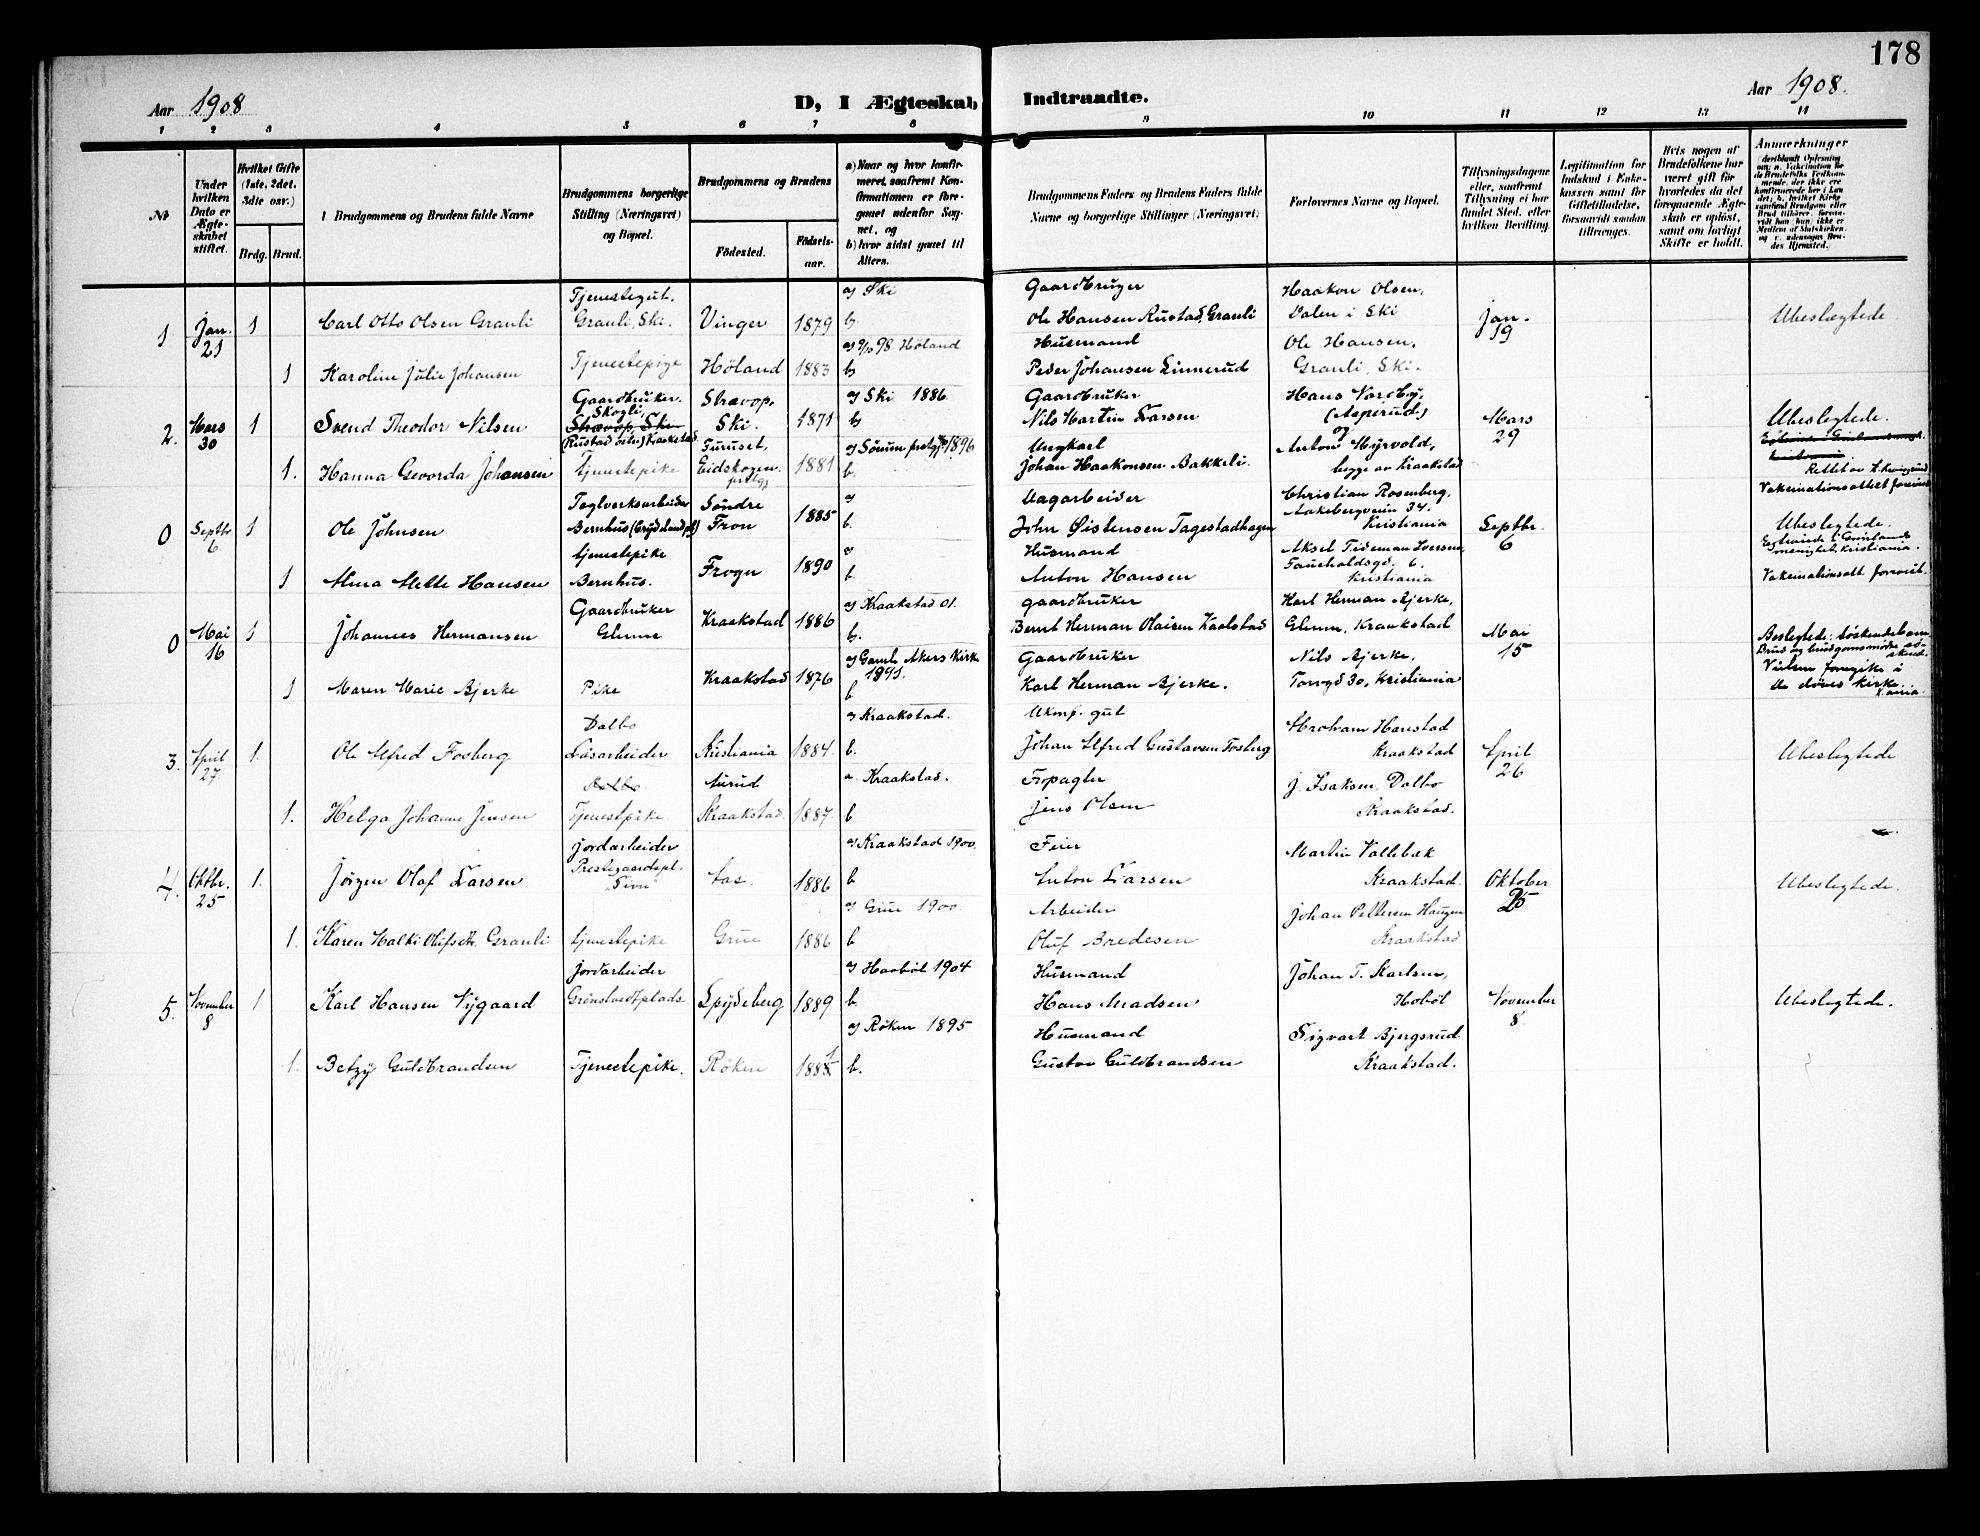 178
Aar 1908
D, I Ægteskab Indtraadte.
Aar 1908.
1 2 3 4 5 6 7 8 9 10 11 12 13 14
№
Under hvilken Dato er Ægte-skabet stiftet.
Hvilket Gifte (1ste, 2det, 3die osv.)
Brdg. Brud.
Brudgommens og Brudens fulde Navne
Brudgommens borgerlige Stilling (Næringsvei) og Bopæl.
Brudgommens og Brudens
Födested.
Födsels-aar.
a) Naar og hvor konfir-meret, saafremt Kon-firmationen er fore-gaaet udenfor Sog-net, og
b) hvor sidst gaaet til Alters.
Brudgommens Faders og Brudens Faders fulde Navne og borgerlige Stillinger (Næringsvei)
Forlovernes Navne og Bopæl.
Tillysningsdagene eller, saafremt Tillysning ei har fundet Sted, efter hvilken Bevilling.
Legitimation for Indskud i Enke-kassen samt for Giftetilladelse, forsaavidt saadan tiltrænges.
Hvis nogen af Brudefolkene har været gift för hvorledes da det foregaaende Ægte-skab er oplöst, samt om lovligt Skifte er holdt.
Anmærkninger
1 Jan. 21 1 Carl Otto Olsen Granli Tjenestegut. Granli, Ski. Vinger 1879 a) Ski b) Gaardbruger Ole Hansen Rustad, Granli Haakon Olsen, Valen i Ski Jan. 19 Ubeslægtede
1 Karoline Julie Johansen Tjenestepige Höland 1883 a) 9/10 98. Höland b) Husmand Peder Johansen Linnerud Ole Hansen, Granli, Ski.
2. Mars 30 1 Svend Theodor Nilsen Gaardbruker. Skogli, Stravop, Ski (Rustad östre) Kraakstad Stravop, Ski. 1871 a) Ski 1886 b) Gaardbruker Nils Martin Larsen Hans Nordby, (Asperud.) og Mars 29 Ubeslegtede.
1. Hanna Gevorda Johansen Tjenestepike Furuset, Eidskogen prstgj. 1881 a) Sörum prstgj. 1896 b. Ungkarl Johan Haakonsen Bakkeli. Anton Myrvold, begge av Kraakstad
0 Septbr 6 1 Ole Johnsen Teglverksarbeider Bernhus (Gryteland pl) Söndre Fron 1885 a) b. Dagarbeider John Öistensen Tagestadhagen Christian Rosenberg, Aakebergveien 34. Kristiania Septbr. 6 Vakcinationsattest forevist Ubeslegtede.
1 Alma Mette Hansen tjenestepike Bernhus. Frogn 1890 a) b. Husmand Anton Hansen Aksel Tideman Iversen, 6. Kristiania Vakcinationsatt. forevist.
0 Mai 16 1 Johannes Hermansen Gaardbruker Glenne Kraakstad 1886 a) Kraakstad 01. b. gaardbruker Bernt Herman Olaisen Kaalstad Karl Herman Bjerke, Glenne, Kraakstad Mai 15 Beslegtede: söskendebarn
1 Maren Marie Bjerke Pike Kraakstad 1876 a) Gamle Akers Kirke 1891. b Gaardbruker Karl Herman Bjerke. Nils Bjerke, Torvgd 30, Kristiania Vielsen foregikk i De döves kirke. K.ania.
3. April 27 1. Ole Alfred Fosberg Dalbo Løsarbeider Kristiania 1884. a) Kraakstad. b. Ukonf. gut Johan Alfred Gustavsen Fosberg Abraham Harestad Kraakstad April 26 Ubeslegtede
1. Helga Johanne Jensen Dalbo. Tjenestpike Aurud Kraakstad. 1887. a. Kraakstad. b Forpagter Jens Olsen J. Isaksen, Dalbo Kraakstad.
4. Oktbr. 25 1. Jørgen Olaf Larsen jordarbeider Prestegaardspl. "Sivn" Aas. 1886 a) Kraakstad 1900. b Feier Anton Larsen Martin Vallebæk Kraakstad. Oktober 25 Ubeslegtede.
1. Karen Halki Olufsdtr. Granli tjenestepike Grue 1886 a) Grue 1900. b Arbeider Oluf Bredesen Johan Pettersen Haugen Kraakstad
5. November 8 1 Karl Hansen Nygaard jordarbeider Grönstvedtplads Spydeberg 1889 a) Haaböl 1904 b. Husmand Hans Madsen Johan T. Karlsen, Haböl November 8. Ubeslegtede.
1. Betzy Guldbrandsen Tjenestepike. Röken 1881 a) Röken 1895 b. Husmand Gustav Guldbrandsen Sigvart Bjergsrud Kraakstad.